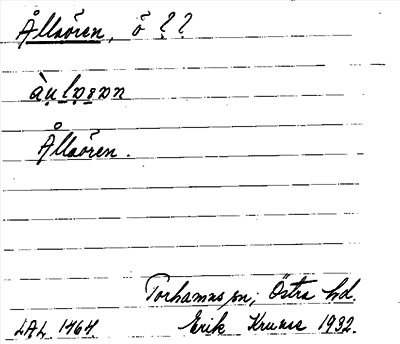 Ållaören, ö ? ?
Ållaören.
Torhamns sn, Östra hd.
LAL 1464 Erik Kruuse 1932.